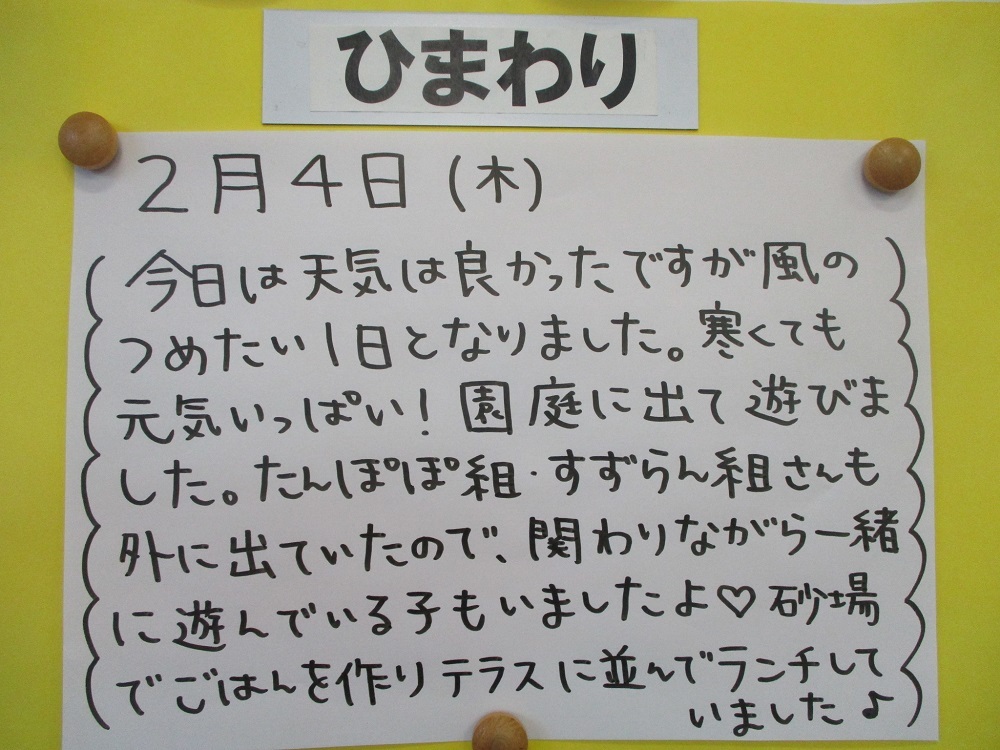 ひまわり
2月4日(木)
今日は天気は良かったですが風の
つめたい1日となりました。寒くても
元気いっぱい!園庭に出て遊びま
した。たんぽぽ組・すずらん組さんも
外に出ていたので、関わりながら一緒
に遊んでいる子もいましたよ♡砂場
でごはんを作りテラスに並んでランチして
いました♪